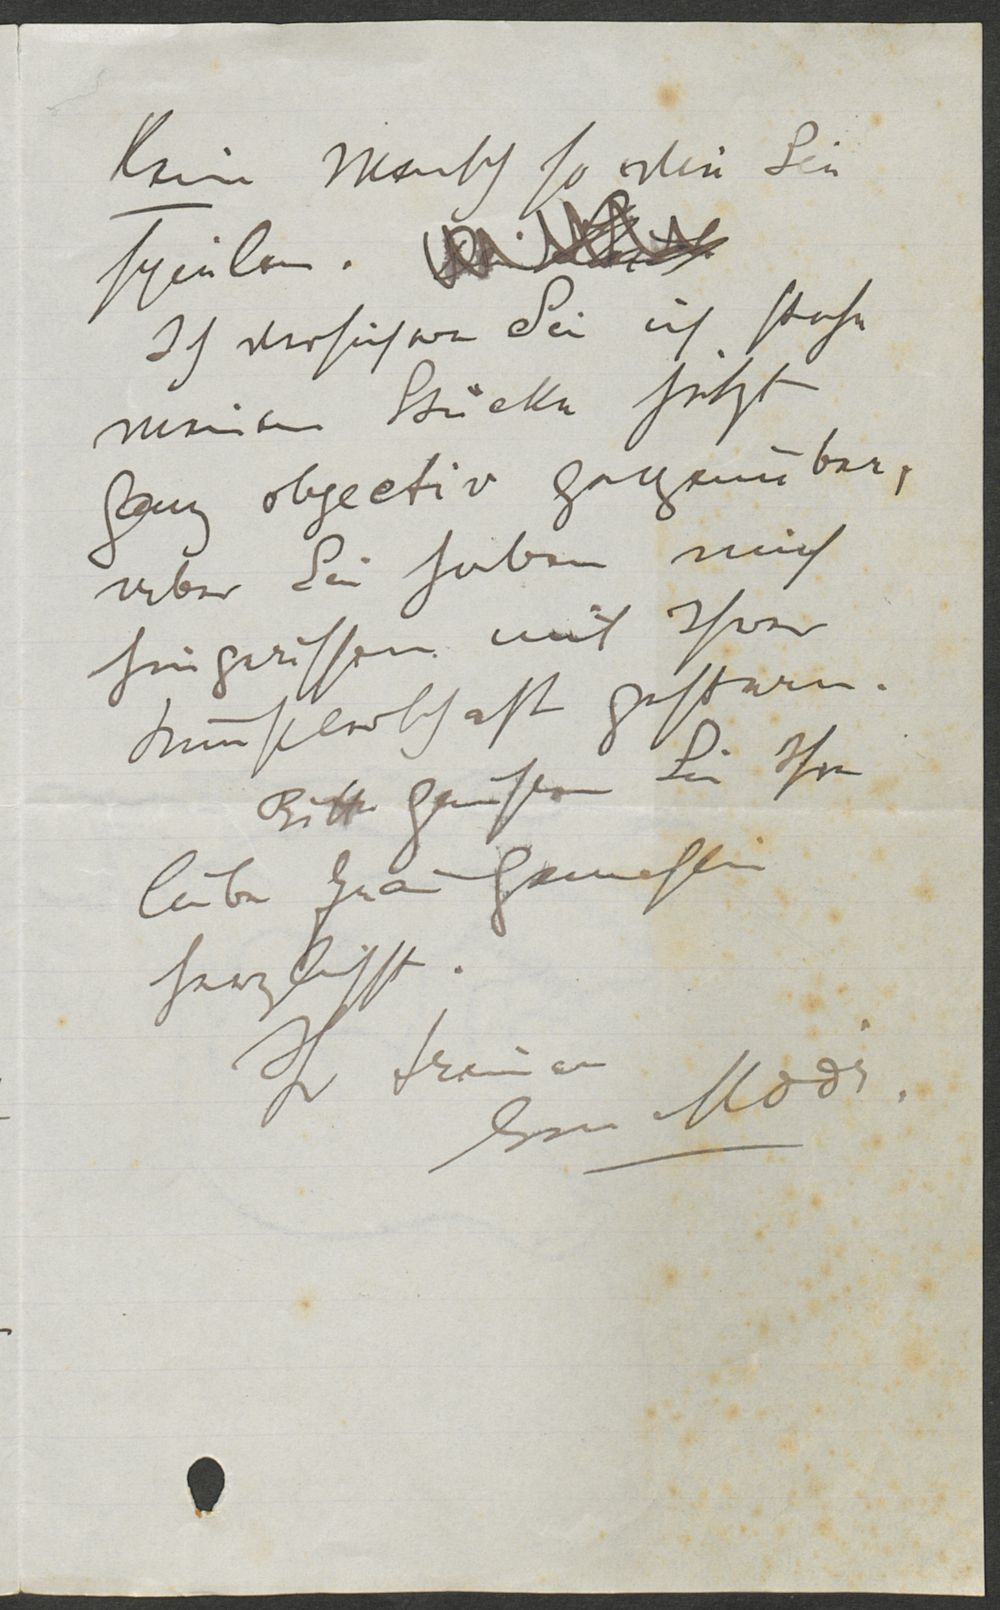 Kein Mensch so wie Sie
spielen.
Ich versichere Sie ich stehe
meinem Stücke jetzt
ganz objectiv gegenüber,
aber Sie haben mich
hingerissen mit Ihrer
gestern.
Bitte grüssen Sie Ihre
liebe Frau Gemahlin
herzlichst.
Ihr treuer